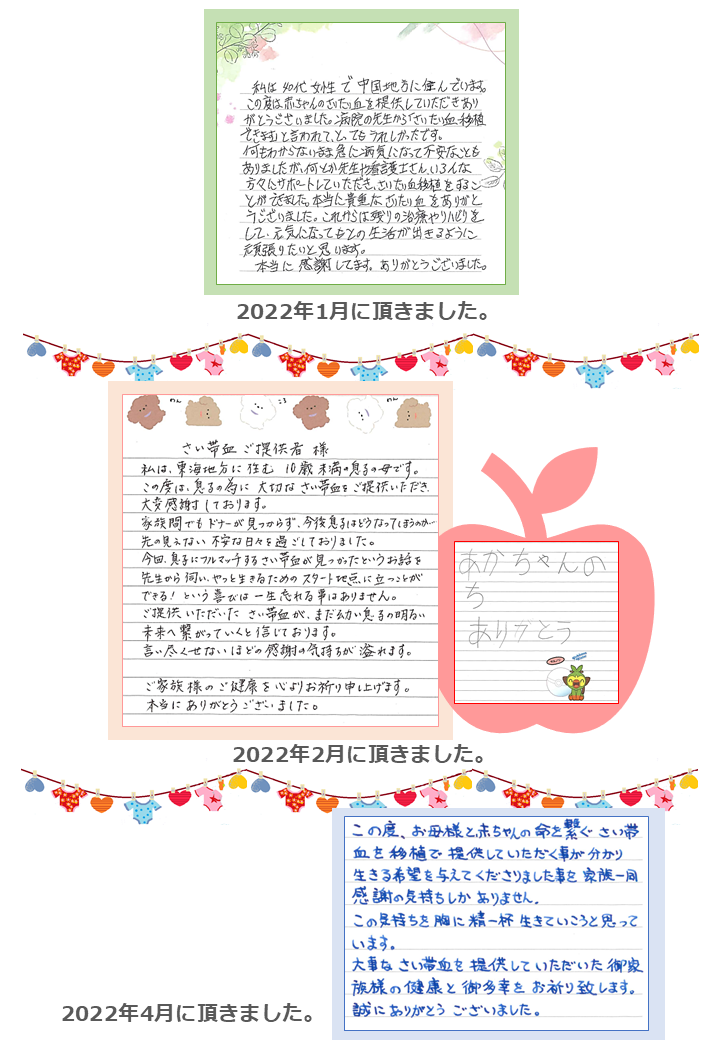 私は40代女性で中国地方に住んでいます。
この度は赤ちゃんのさいたい血を提供していただきあり
がとうございました。病院の先生から「さいたい血移植
できます」と言われて、とってもうれしかったです。
何もわからないまま急に病気になって不安なことも
ありましたが、何とか先生や看護士さん、いろんな
方々にサポートしていただき、さいたい血移植をするこ
とができました。本当に貴重なさいたい血をありがと
うございました。これからは残りの治療やリハビリを
して、元気になってもとの生活が出きるように
頑張りたいと思います。
本当に感謝してます。ありがとうございました。
2022年1月に頂きました。
わん
ころ
わん
さい帯血ご提供者様
私は、東海地方に住む 10歳未満の息子の母です。
この度は、息子の為に 大切な さい帯血をご提供いただき、
大変感謝しております。
家族間でもドナーが見つからず、今後息子はどうなってしまうのか
先の見えない 不安な日々を過ごしておりました。
今回、息子にフルマッチするさい帯血が見つかったというお話を
先生から伺い、やっと生きるための スタート地点に立つことが
できる！という喜びは一生忘れる事はありません。
ご提供いただいた さい帯血が、まだ幼い息子の明るい
未来へ繋がっていくと信じております。
言い尽くせないほどの感謝の気持ちが溢れます。
ご家族様のご健康を心よりお祈り申し上げます。
本当にありがとうございました。
あかちゃんの
ち
ありがとう
2022年2月に頂きました。
この度、お母様と赤ちゃんの命を繋ぐさい帯
血を移植で提供していただく事が分かり
生きる希望を与えてくださりました事を家族一同
感謝の気持ちしかありません。
この気持ちを胸に精一杯生きていこうと思って
います。
大事なさい帯血を提供していただいた御家
族様の健康と御多幸をお祈り致します。
誠にありがとうございました。
2022年4月に頂きました。